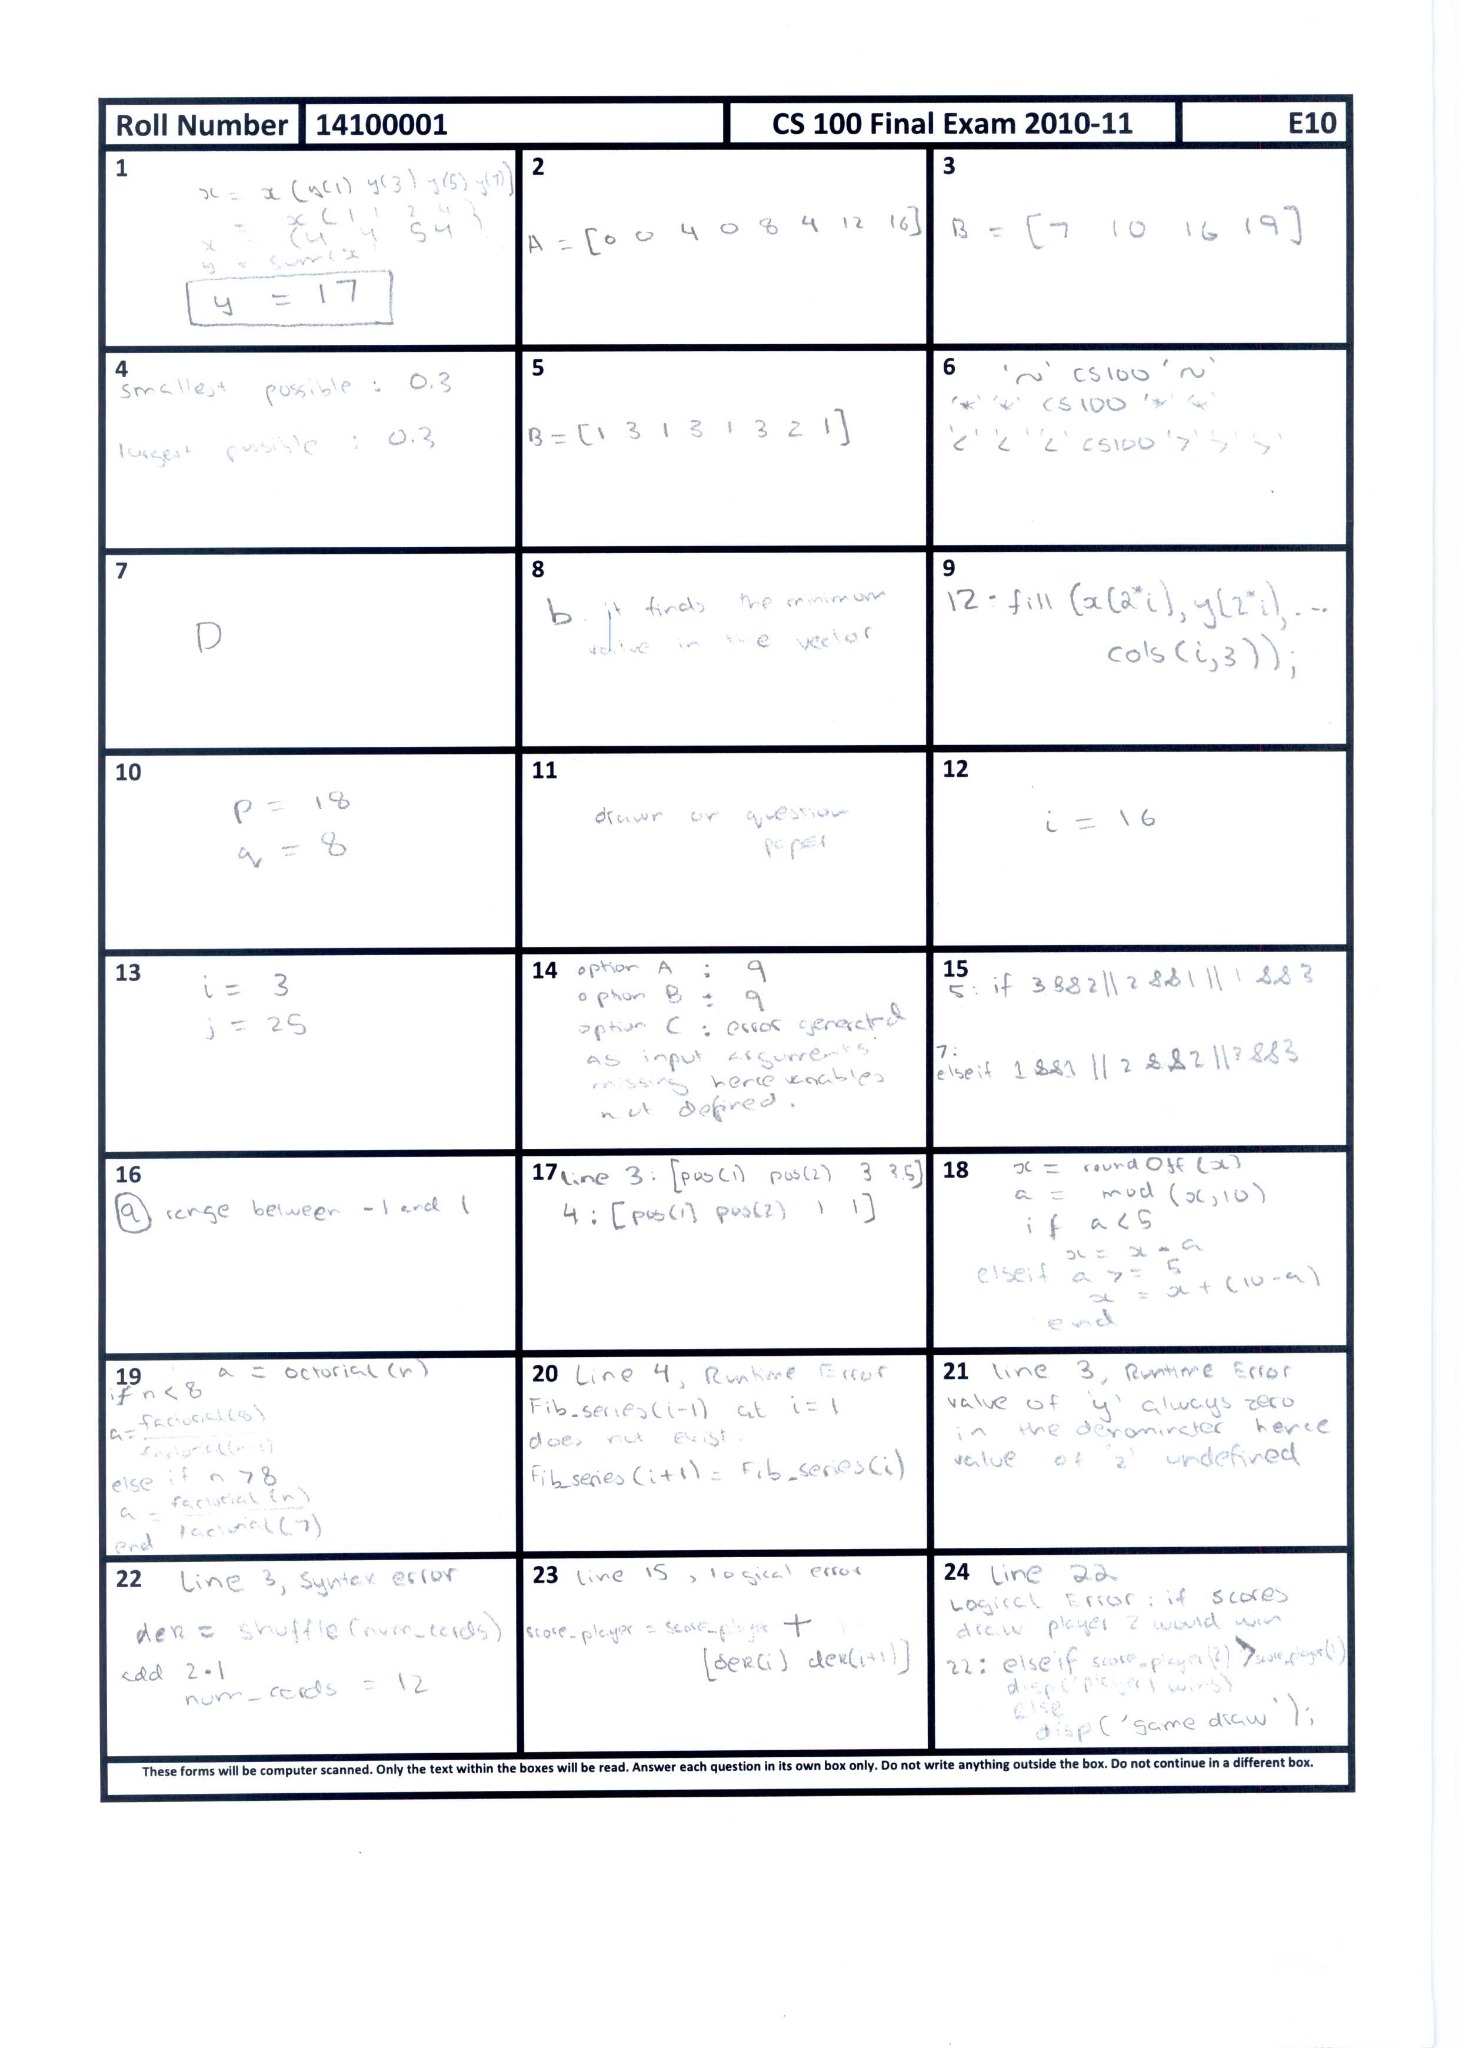 Roll Number 14100001 CS 100 Final Exam 2010-11 E10
1
x = x (y(1) y(3) y(5) y(7)]
= x ( 1 1 2 4 )
x = (4 4 5 4
y = sum(x)
y = 17
2
A = [0 0 4 0 8 4 12 16]
3
B = [7 10 16 19]
4
smallest possible : 0.3
largest possible : 0.3
5
B = [1 3 1 3 1 3 2 1]
6
'~' CS100 '~'
'*' '*' CS100 '*' '*'
'<' '<' '<' CS100 '>' '>' '>'
7
D
8
b. it finds the minimum
value in the vector
9
12: fill (x(2*i), y(2*i), ...
cols(i,3));
10
p = 18
q = 8
11
drawn on question
paper
12
i = 16
13
i = 3
j = 25
14 option A : 9
option B : 9
option C : error generated
as input arguments
missing hence variables
not defined.
15
5: if 3&&2||2&&1||1&&3
7:
elseif 1&&1||2&&2||3&&3
16
a range between -1 and 1
17 line 3: [pos(1) pos(2) 3 3.5]
4: [pos(1) pos(2) 1 1]
18 x = roundOff(x)
a = mod(x,10)
if a<5
x = x - a
elseif a >= 5
x = x + (10-a)
end
19 a = octorial(n)
if n<8
a = factorial(8)
else if n >8
a = factorial(n)
factorial(7)
end
20 Line 4, Runtime Error
Fib_series(i-1) at i=1
does not exist.
Fib_series(i+1) = Fib_series(i)
21 line 3, Runtime Error
value of 'y' always zero
in the denominator hence
value of 'z' undefined
22 Line 3, Syntax error
dek = shuffle(num_cards)
add 2.1
num_cards = 12
23 line 15, logical error
score_player = score_player +
[dek(i) dek(i+1)]
24 Line 22
Logical Error: if scores
draw player 2 would win
22: elseif score_player(2) > score_player(1)
disp('player 1 wins)
else
disp('game draw');
These forms will be computer scanned. Only the text within the boxes will be read. Answer each question in its own box only. Do not write anything outside the box. Do not continue in a different box.